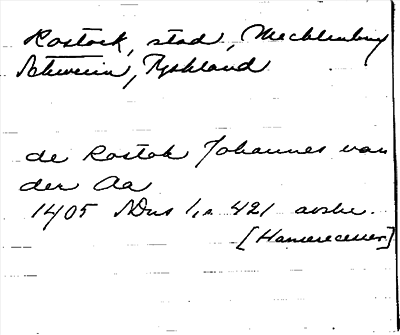 Rostock, stad, Mecklenburg
Schwerin, Tyskland
de Rostok Johannes van
der Aa
1405 NDns 1,a 421 avskr.
[Hanserecesser]